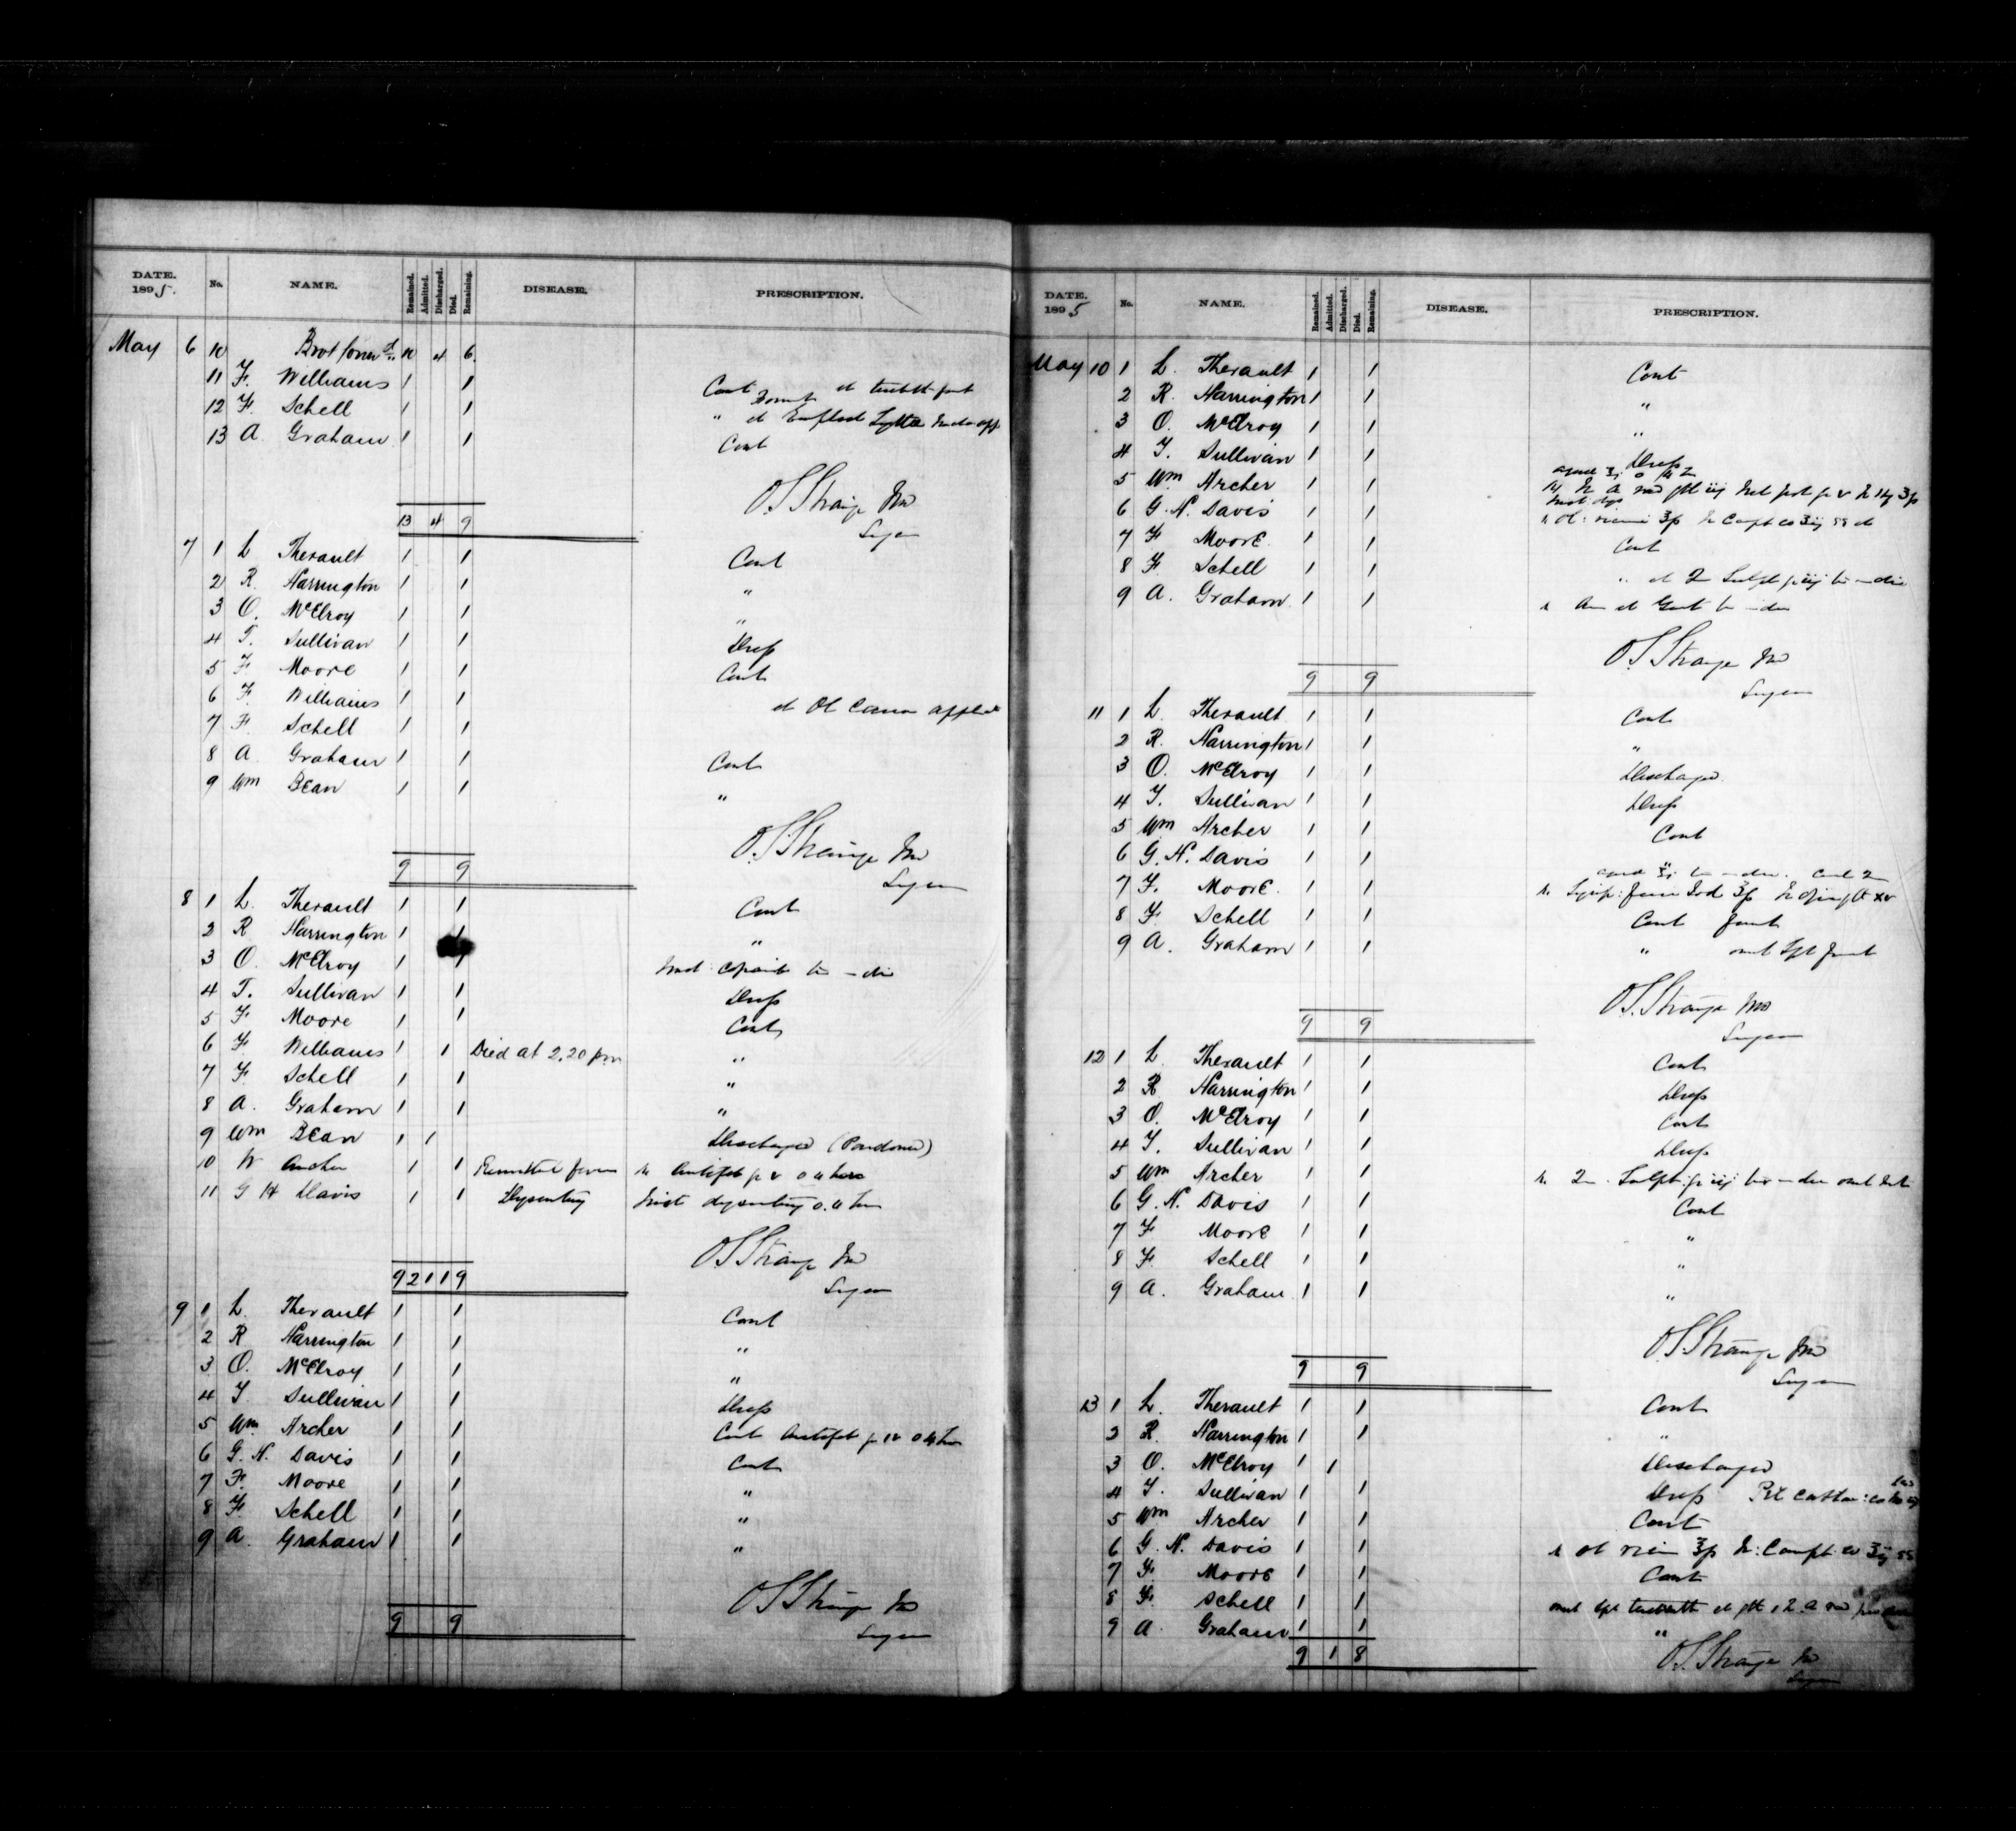 DATE. 1895. No. NAME. Remained. Admitted. Discharged. Died. Remaining. DISEASE. PRESCRIPTION.
May 6 10 Brot forwd 10 4 6
11 F. Williams 1 1 Cont
12 F. Schell 1 1 "
13 A Graham 1 1 Cont
O S Strange MD
13 4 9 Surgeon
7 1 L Therault 1 1 Cont
2 R. Harrington 1 1 "
3 O. McElroy 1 1 "
4 T. Sullivan 1 1 Dress
5 F Moore 1 1 Cont
6 F Williams 1 1 et Ol
7 F. Schell 1 1
8 A Graham 1 1 Cont
9 Wm Bean 1 1 "
O. S. Strange MD
9 9 Surgeon
8 1 L. Therault 1 1 Cont
2 R Harrington 1 1 "
3 O. McElroy 1 1 Mist
4 T. Sullivan 1 1 Dress
5 F Moore 1 1 Cont
6 F Williams 1 1 Died at 2.20 pm "
7 F. Schell 1 1 "
8 A. Graham 1 1 "
9 Wm Bean 1 1 Discharged (Pardoned)
10 W Archer 1 1 Remittent fever
11 G H Davis 1 1 Dysentery Mist dysentery
O S Strange MD
9 2 1 1 9 Surgeon
9 1 L. Therault 1 1 Cont
2 R Harrington 1 1 "
3 O. McElroy 1 1 "
4 T Sullivan 1 1 Dress
5 Wm. Archer 1 1 Cont
6 G. H. Davis 1 1 Cont
7 F. Moore 1 1 "
8 F. Schell 1 1 "
9 A. Graham 1 1 "
O S Strange MD
9 9 Surgeon
DATE. 1895 No. NAME. Remained. Admitted. Discharged. Died. Remaining. DISEASE. PRESCRIPTION.
May 10 1 L. Therault 1 1 Cont
2 R. Harrington 1 1 "
3 O. McElroy 1 1 "
4 T. Sullivan 1 1 Dress
5 Wm Archer 1 1
6 G. H. Davis 1 1
7 F Moore 1 1 Cont
8 F. Schell 1 1 "
9 A. Graham 1 1
O S Strange MD
9 9 Surgeon
11 1 L. Therault 1 1 Cont
2 R. Harrington 1 1 "
3 O. McElroy 1 1 Discharged
4 T. Sullivan 1 1 Dress
5 Wm Archer 1 1 Cont
6 G. H. Davis 1 1
7 F. Moore 1 1
8 F Schell 1 1 Cont
9 A. Graham 1 1 "
O S. Strange MD
9 9 Surgeon
12 1 L. Therault 1 1 Cont
2 R Harrington 1 1 Dress
3 O. McElroy 1 1 Cont
4 T. Sullivan 1 1 Dress
5 Wm Archer 1 1
6 G. H. Davis 1 1 Cont
7 F Moore 1 1 "
8 F Schell 1 1 "
9 A. Graham 1 1 "
O. S. Strange MD
9 9 Surgeon
13 1 L. Therault 1 1 Cont
2 R. Harrington 1 1 "
3 O. McElroy 1 1 Discharged
4 T. Sullivan 1 1 Dress
5 Wm Archer 1 1 Cont
6 G. H. Davis 1 1
7 F. Moore 1 1 Cont
8 F. Schell 1 1
9 A. Graham 1 1 "
9 1 8 O. S. Strange MD
Surgeon